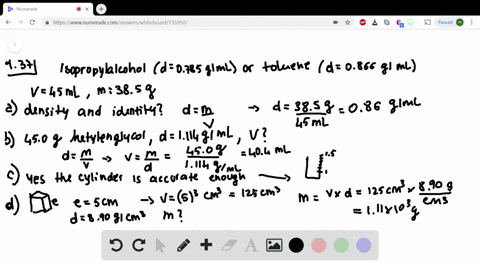 Numerade
https://www.numerade.com/answers/whiteboard/135950/
1.37) isopropylalcohol (d=0.785 g/mL) or toluene (d=0.866 g/mL)
V=45mL, m=38.5g
a) density and identity? d=m/V → d=38.5g/45mL=0.86 g/mL
b) 45.0g hetylenglycol, d=1.114 g/mL, V?
d=m/V → V=m/d=45.0g/1.114 g/mL=40.4 mL
c) yes the cylinder is accurate enough → 1.5 1
d) e e=5cm → V=(5)³ cm³=125cm³ m=V×d=125cm³×8.90g/cm³
d=8.90 g/cm³ m? =1.11×10³g